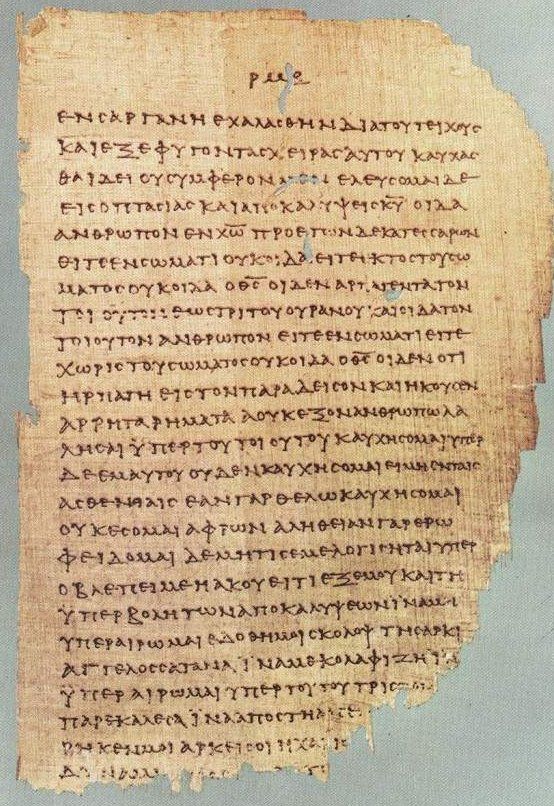 ΕΝϹΑΡΓΑΝΗΕΧΑΛΑϹΘΗΝΔΙΑΤΟΥΤΕΙΧΟΥϹ
ΚΑΙΕΞΕΦΥΓΟΝΤΑϹΧΕΙΡΑϹΑΥΤΟΥΚΑΥΧΑϹ
ΘΑΙΔΕΙΟΥϹΥΜΦΕΡΟΝΜΕΝΕΛΕΥϹΟΜΑΙΔΕ
ΕΙϹΟΠΤΑϹΙΑϹΚΑΙΑΠΟΚΑΛΥΨΕΙϹΚ̅Υ̅ΟΙΔΑ
ΑΝΘΡΩΠΟΝΕΝΧ̅Ω̅ΠΡΟΕΤΩΝΔΕΚΑΤΕϹϹΑΡΩΝ
ΕΙΤΕΕΝϹΩΜΑΤΙΟΥΚΟΙΔΑΕΙΤΕΕΚΤΟϹΤΟΥϹΩ
ΜΑΤΟϹΟΥΚΟΙΔΑΟΘ̅Ϲ̅ΟΙΔΕΝΑΡΠΑΓΕΝΤΑΤΟΝ
ΤΟΙΟΥΤΟΝΕΩϹΤΡΙΤΟΥΟΥΡΑΝΟΥΚΑΙΟΙΔΑΤΟΝ
ΤΟΙΟΥΤΟΝΑΝΘΡΩΠΟΝΕΙΤΕΕΝϹΩΜΑΤΙΕΙΤΕ
ΧΩΡΙϹΤΟΥϹΩΜΑΤΟϹΟΥΚΟΙΔΑΟΘ̅Ϲ̅ΟΙΔΕΝΟΤΙ
ΗΡΠΑΓΗΕΙϹΤΟΝΠΑΡΑΔΕΙϹΟΝΚΑΙΗΚΟΥϹΕΝ
ΑΡΡΗΤΑΡΗΜΑΤΑΑΟΥΚΕΞΟΝΑΝΘΡΩΠΩΛΑ
ΛΗϹΑΙΫΠΕΡΤΟΥΤΟΙΟΥΤΟΥΚΑΥΧΗϹΟΜΑΙΥΠΕΡ
ΔΕΕΜΑΥΤΟΥΟΥΔΕΝΚΑΥΧΗϹΟΜΑΙΕΙΜΗΕΝΤΑΙϹ
ΑϹΘΕΝΕΙΑΙϹΕΑΝΓΑΡΘΕΛΩΚΑΥΧΗϹΟΜΑΙ
ΟΥΚΕϹΟΜΑΙΑΦΡΩΝΑΛΗΘΕΙΑΝΓΑΡΕΡΩ
ΦΕΙΔΟΜΑΙΔΕΜΗΤΙϹΕΜΕΛΟΓΙϹΗΤΑΙΥΠΕΡ
ΟΒΛΕΠΕΙΜΕΗΑΚΟΥΕΙΤΙΕΞΕΜΟΥΚΑΙΤΗ
ΫΠΕΡΒΟΛΗΤΩΝΑΠΟΚΑΛΥΨΕΩΝΪΝΑΜΗ
ΥΠΕΡΑΙΡΩΜΑΙΕΔΟΘΗΜΟΙϹΚΟΛΟΨΤΗϹΑΡΚΙ
ΑΓΓΕΛΟϹϹΑΤΑΝΑΪΝΑΜΕΚΟΛΑΦΙΖΗΪΝΑ
ΫΠΕΡΑΙΡΩΜΑΙΥΠΕΡΤΟΥΤΟΥΤΡΙϹ
ΠΑΡΕΚΑΛΕϹΑΪΝΑΑΠΟϹΤΗΑΠ
ΡΗΚΕΝΜΟΙΑΡΚΕΙϹΟΙΗΧΑΡΙϹ